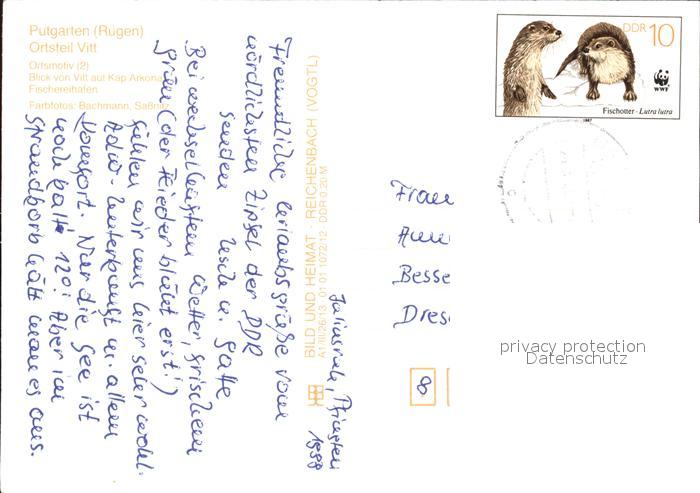 Putgarten (Rügen)
Ortsteil Vitt
Ortsmotiv (2)
Blick von Vitt auf Kap Arkona
Fischereihafen
Farbfotos: Bachmann, Saßnitz
BILD UND HEIMAT · REICHENBACH (VOGTL)
A1/III/26/13 01 01 10/7/2/12 DDR 0,20 M
DDR 10
WWF
Fischotter · Lutra lutra
1987
Juliusruh, Pfingsten
1988
Freundliche Urlaubsgrüße vom
nördlichsten Zipfel der DDR
senden Usch u. Gatte
Bei wechselhaftem Wetter, frischem
Grün (der Flieder blüht erst!)
fühlen wir uns hier sehr wohl.
Adw-Unterkunft m. allem
Komfort. Nur die See ist
noch kalt 12°! Aber im
Strandkorb hält man es aus.
Frau
Bess
Dres
8
privacy protection
Datenschutz